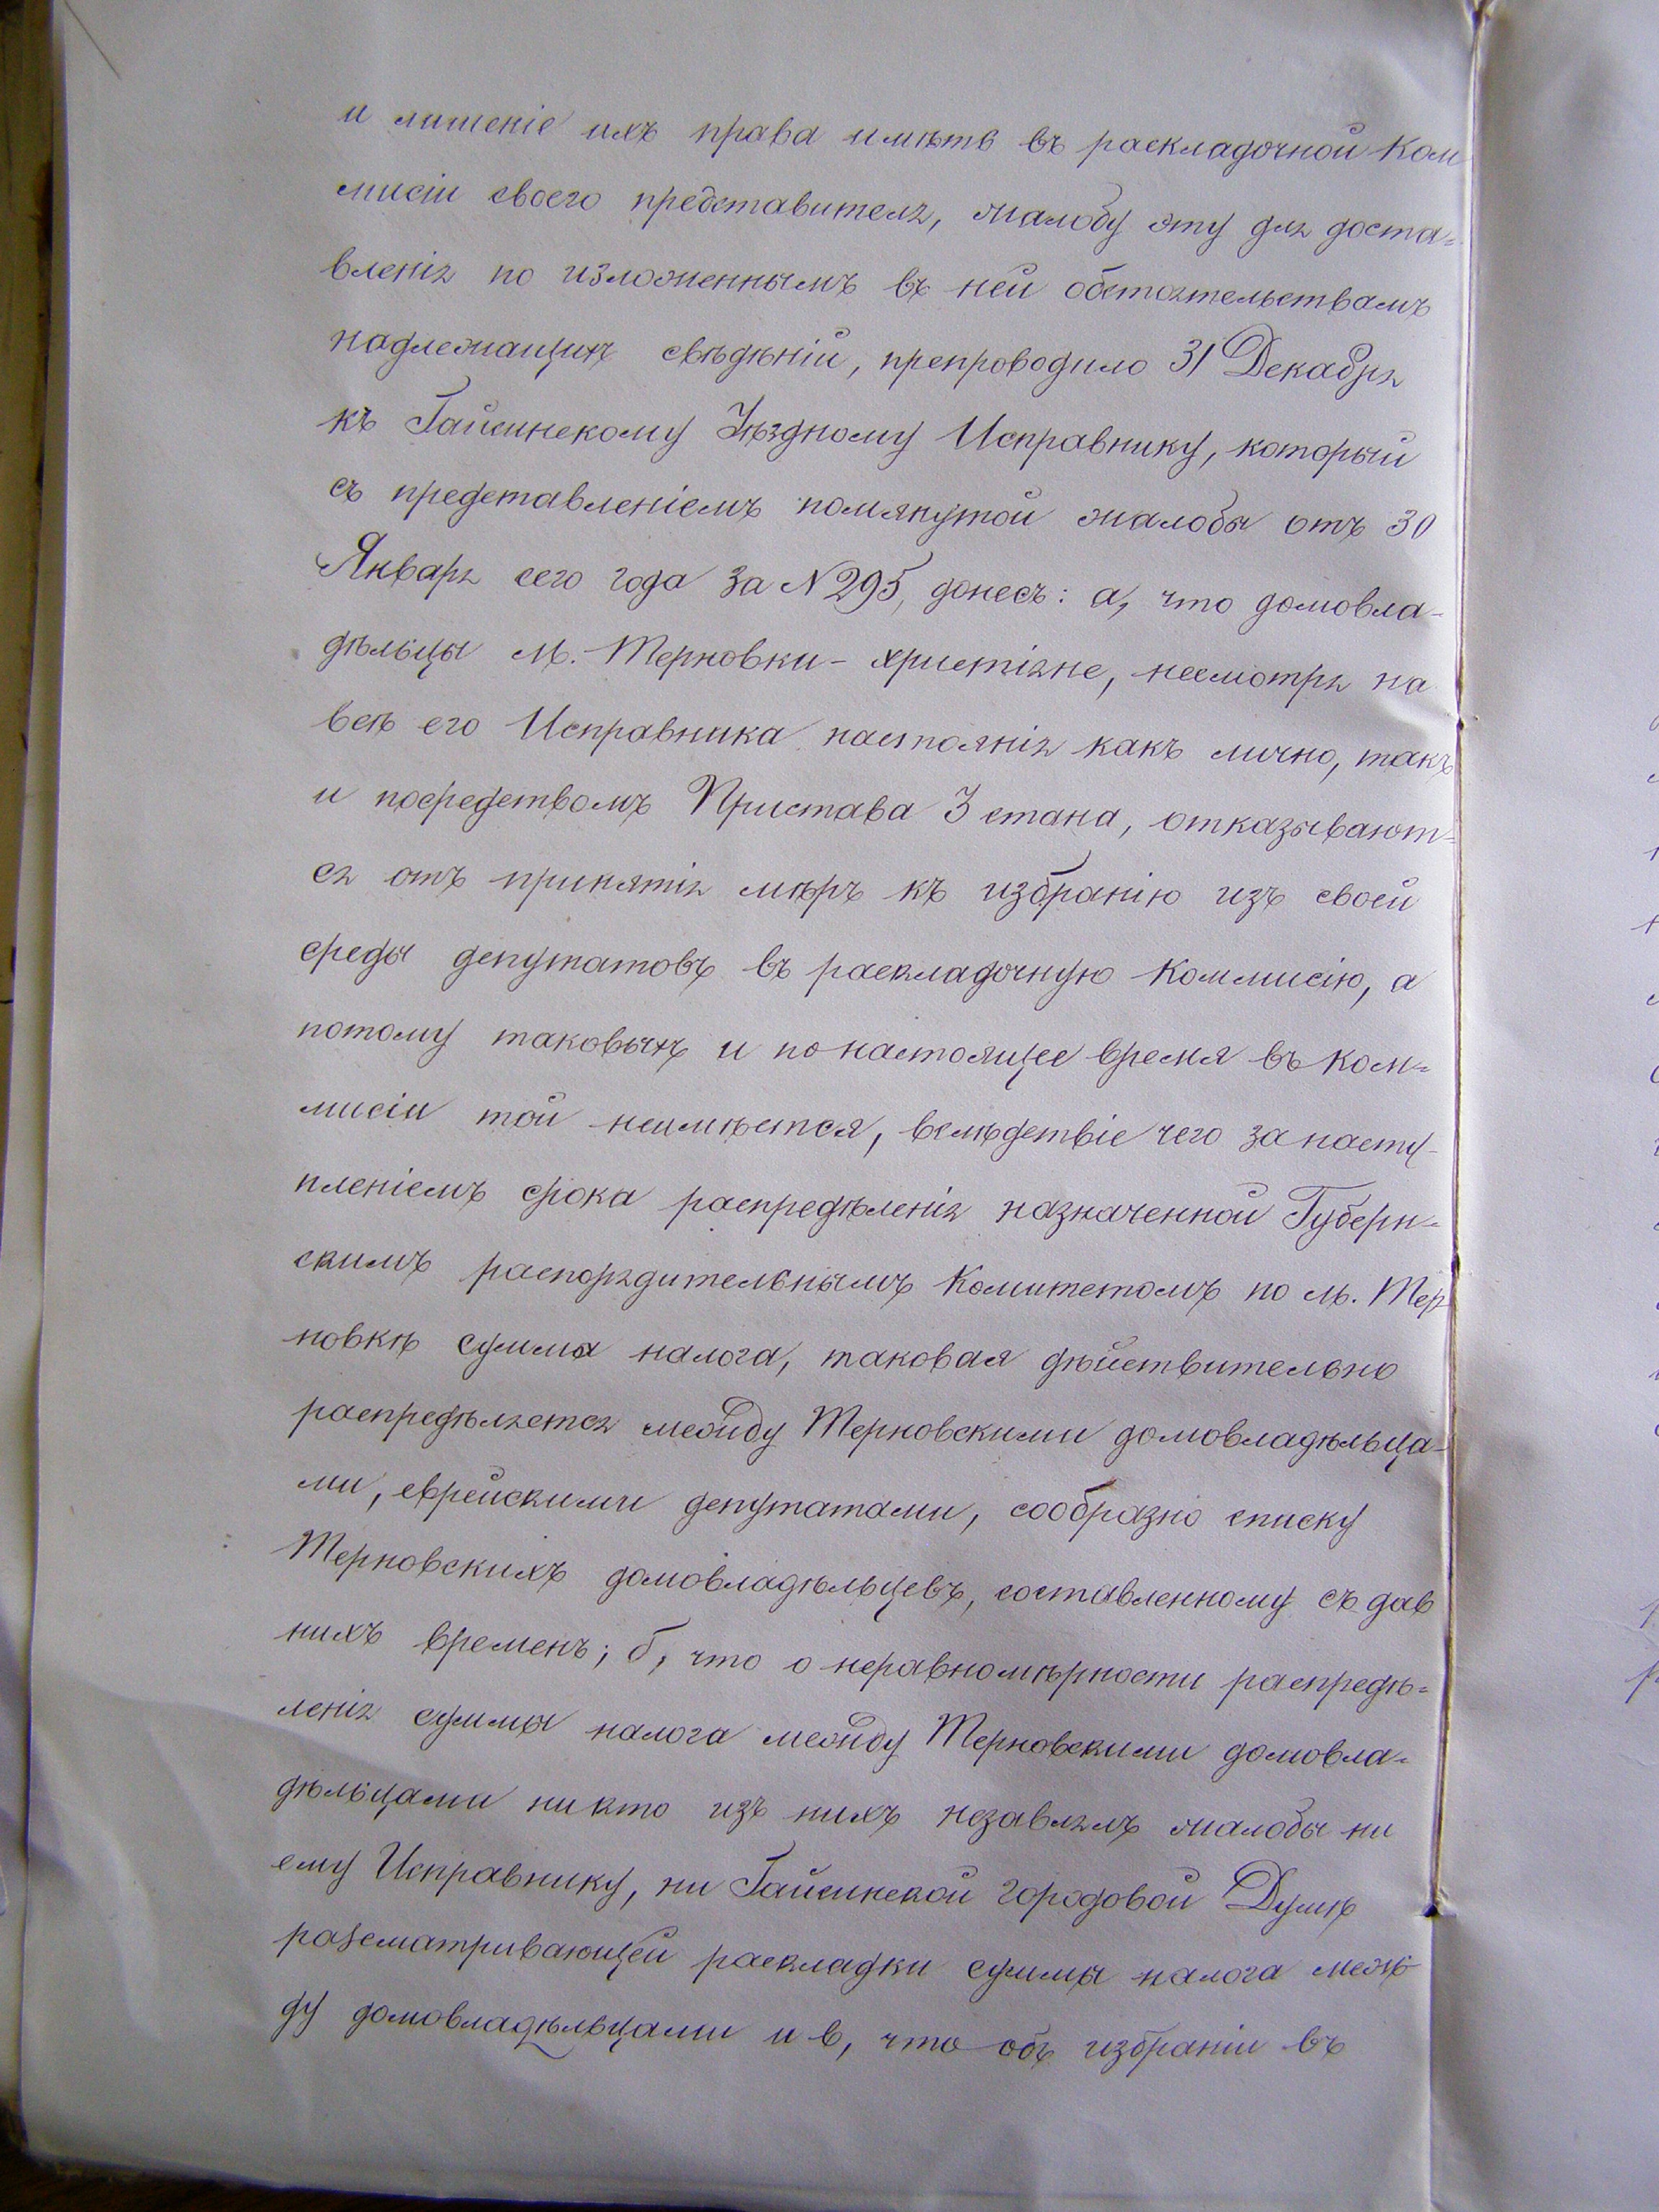 и лишеніе ихъ права имѣть въ раскладочной Ком
мисіи своего представителя, жалобу эту для доста=
вленія по изложеннымъ въ ней обстоятельствамъ
надлежащихъ свѣдѣній, препроводило 31 Декабря
къ Гайсинскому Уѣздному Исправнику, который
съ представленіемъ помянутой жалобы отъ 30
Января сего года за N 295, донесъ: а, что домовла-
дѣльцы м. Терновки - христіяне, несмотря на
всѣ его Исправника настоянія какъ лично, такъ
и посредствомъ Пристава 3 стана, отказывают=
ся отъ принятія мѣръ къ избранію изъ своей
среды депутатовъ въ раскладочную Коммисію, а
потому таковыхъ и по настоящее время въ Ком=
мисіи той неимѣется, вслѣдствіе чего за насту-
пленіемъ срока распредѣленія назначенной Губерн=
скимъ распорядительнымъ Комитетомъ по м. Тер
новкѣ сумма налога, таковая дѣйствительно
распредѣляется между Терновскими домовладѣльца-
ми, еврейскими депутатами, сообразно списку
Терновскихъ домовладѣльцевъ, составленному съ дав
нихъ временъ; б, что о неравномѣрности распредѣ=
ленія суммы налога между Терновскими домовла=
дѣльцами никто изъ нихъ незавлялъ жалобы ни
ему Исправнику, ни Гайсинской городовой Думѣ
разсматривающей раскладки суммы налога меж-
ду домовладѣльцами и в, что объ избраніи въ